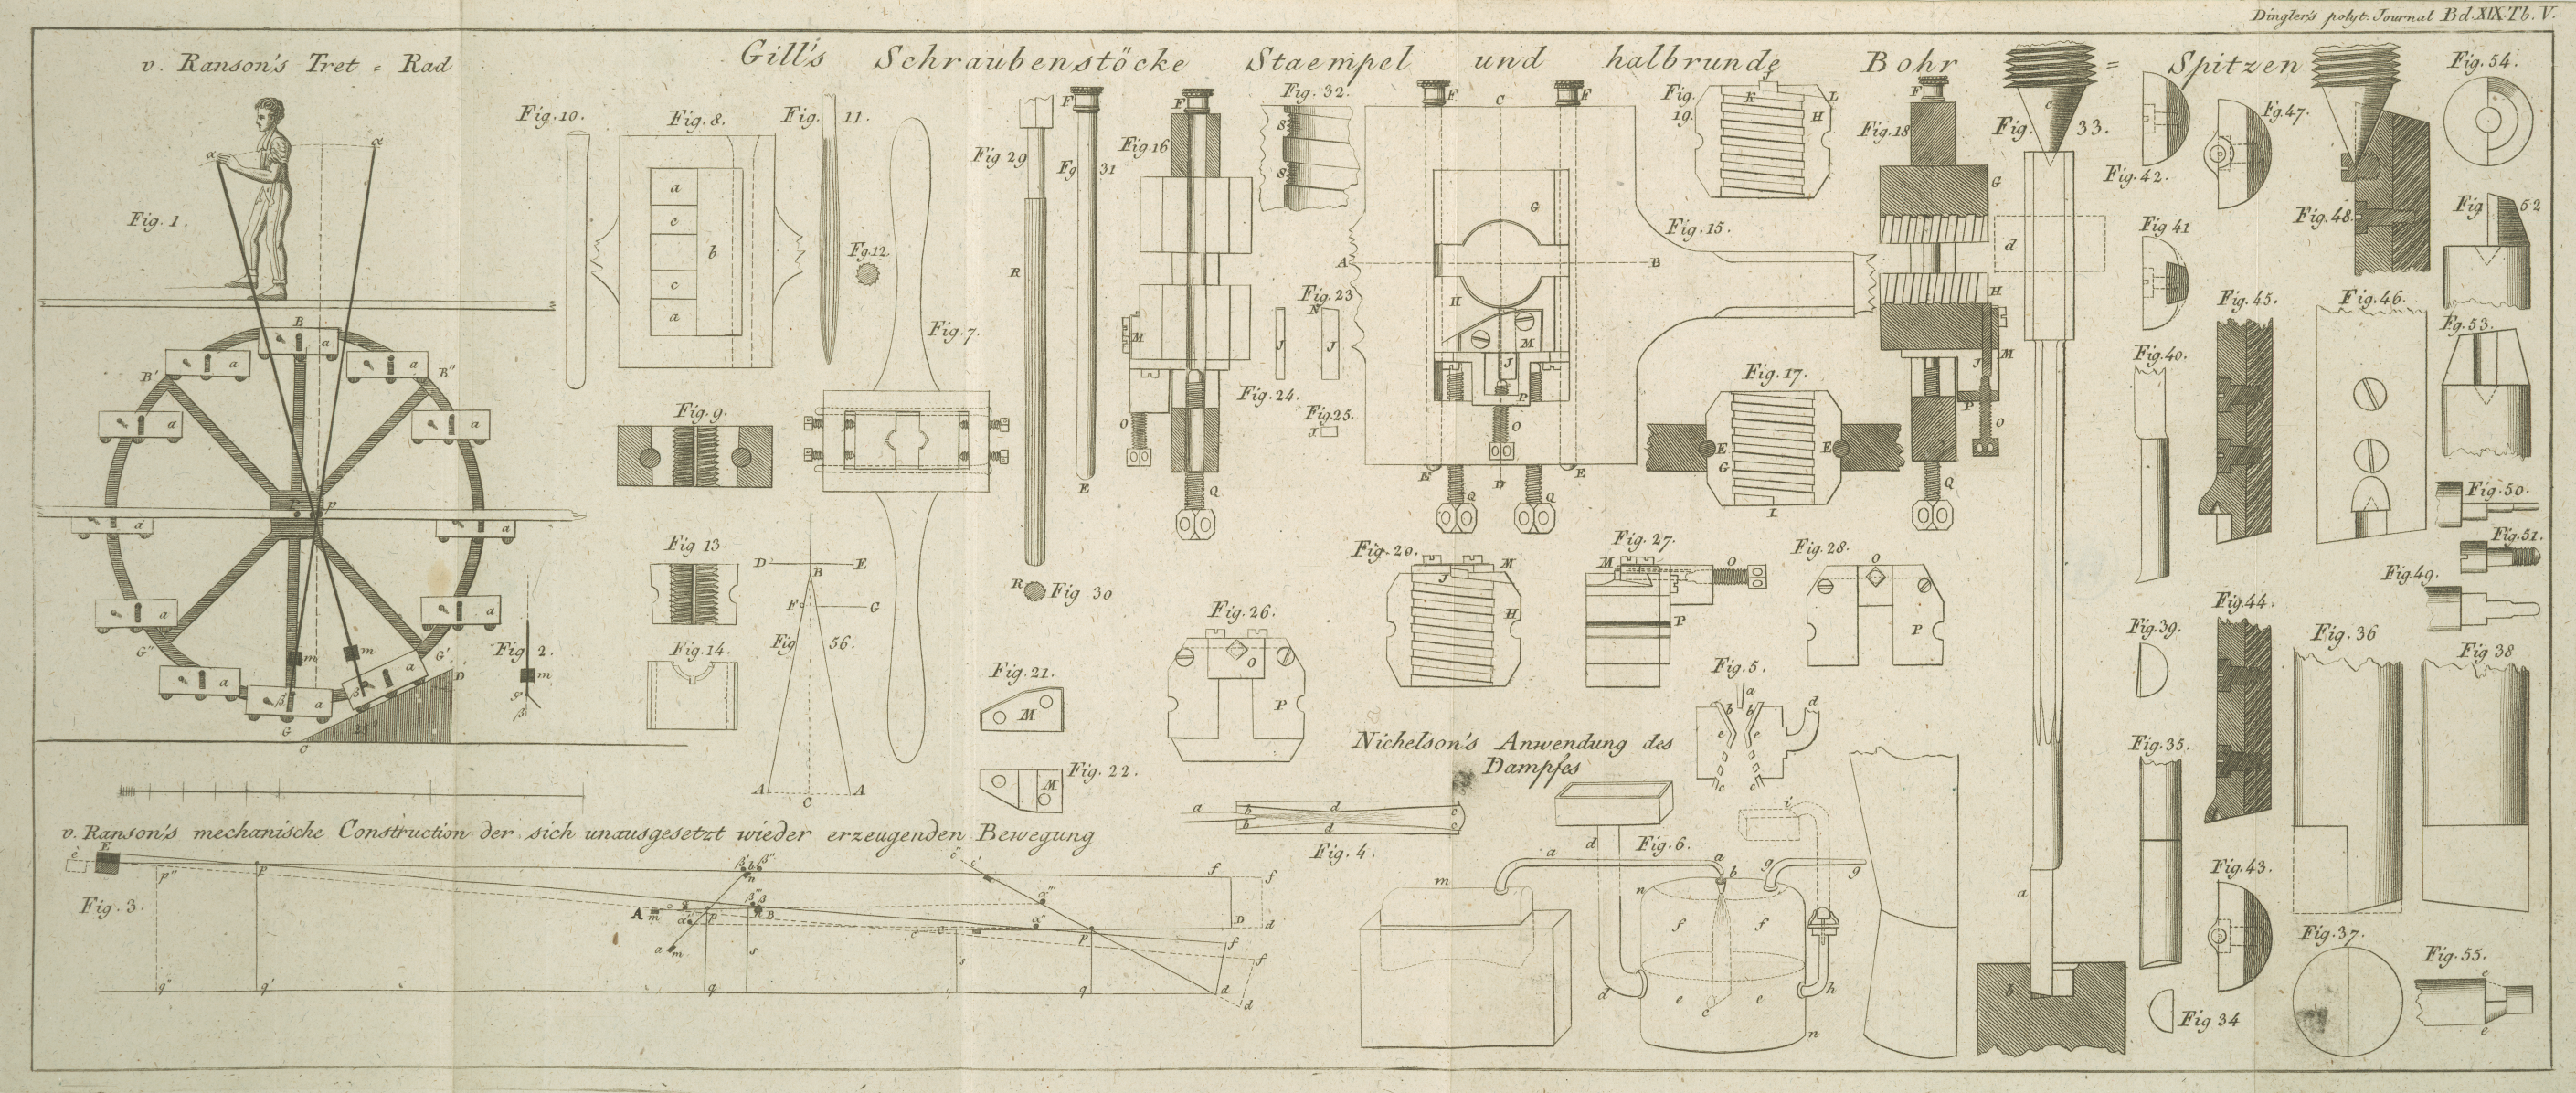 Dingler's polyt. Journal Bd. XIX. Tb. V.
v. Ranson's Tret = Rad
Gill's Schraubenstöcke Staempel und halbrunde Bohr = Spitzen
Fig. 1.
α
α
B
B'
B''
a
a
a
a
a
a
a
a
a
a
a
P
p
G''
G'
m
m
β
β
G
C
D
25°
Fig. 2.
m
g
β
Fig. 10.
Fig. 8.
a
c
b
c
a
Fig. 11.
Fg. 12.
Fig. 7.
Fig. 9.
Fig 13
Fig. 14.
D
E
B
F
G
Fig 56.
A
C
A
Fig 29
R
R
Fig 30
Fg 31
F
E
Fig. 16
F
M
O
Q
Fig. 32.
S
S
Fig. 23
N
J
J
Fig. 24.
Fig. 25.
J
F
C
F
G
A
B
H
M
J
P
O
E
D
E
Q
Q
Fig. 15.
Fig. 19.
J
K
L
H
Fig. 17.
E
E
G
I
Fig. 18
F
G
H
M
J
P
O
Q
Fig. 33.
c
d
a
b
Fig. 42.
Fg. 47.
Fig. 48.
Fig. 54.
Fig 41
Fig 52
Fig. 45.
Fig. 46.
Fg. 53.
Fig. 40.
Fig. 50.
Fig. 51.
Fig. 49.
Fig. 39.
Fig. 44.
Fig. 36
Fig 38
Fig. 35.
Fig. 43.
Fig. 37.
Fig. 55.
e
e
Fig 34
Fig. 20.
M
J
H
Fig. 27.
M
O
P
Fig. 28.
O
P
Fig. 26.
O
P
Fig. 21.
M
Fig. 22.
M
Fig. 5.
a
b
b
d
e
e
c
c
Nichelson's Anwendung des
Dampfes
a
b
b
d
d
c
c
Fig. 4.
Fig. 6.
i
d
a
a
b
g
g
m
n
f
f
d
e
e
c
h
n
v. Ranson's mechanische Construction der sich unausgesetzt wieder erzeugenden Bewegung
Fig. 3.
e
E
p''
P
β'
b
β''
n
c''
c'
f
f
A
m
α''
p
β'''
B
α'''
α''
D
d
a
m
s
c
s
P
f
f
g''
g'
q
q
d
d